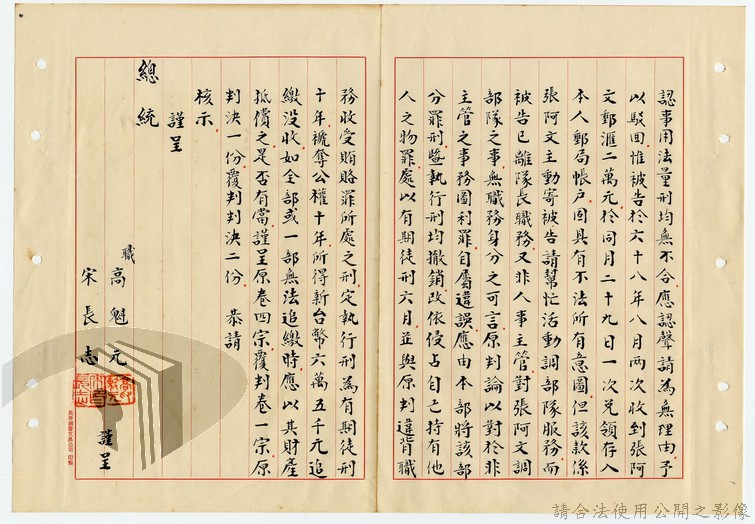 認事用法量刑均無不合應認聲請為無理由予
以駁回惟被告於六十八年八月兩次收到張阿
文郵滙二萬元於同月二十九日一次兌領存入
本人郵局帳戶固具有不法所有意圖但該款係
張阿文主動寄被告請幫忙活動調部隊服務而
被告已離隊長職務又非人事主管對張阿文調
部隊之事無職務身分之可言原判論以對於非
主管之事務圖利罪自屬違誤應由本部將該部
分罪刑暨執行刑均撤銷改依侵占自己持有他
人之物罪處以有期徒刑六月並與原判違背職
務收受賄賂罪所處之刑定執行刑為有期徒刑
十年褫奪公權十年所得新台幣六萬五千元追
繳沒收如全部或一部無法追繳時應以其財產
抵償之是否有當謹呈原卷四宗覆判卷一宗原
判決一份覆判判決二份 恭請
核示
謹呈
總統
職 高魁元
宋長志 謹呈
請合法使用公開之影像